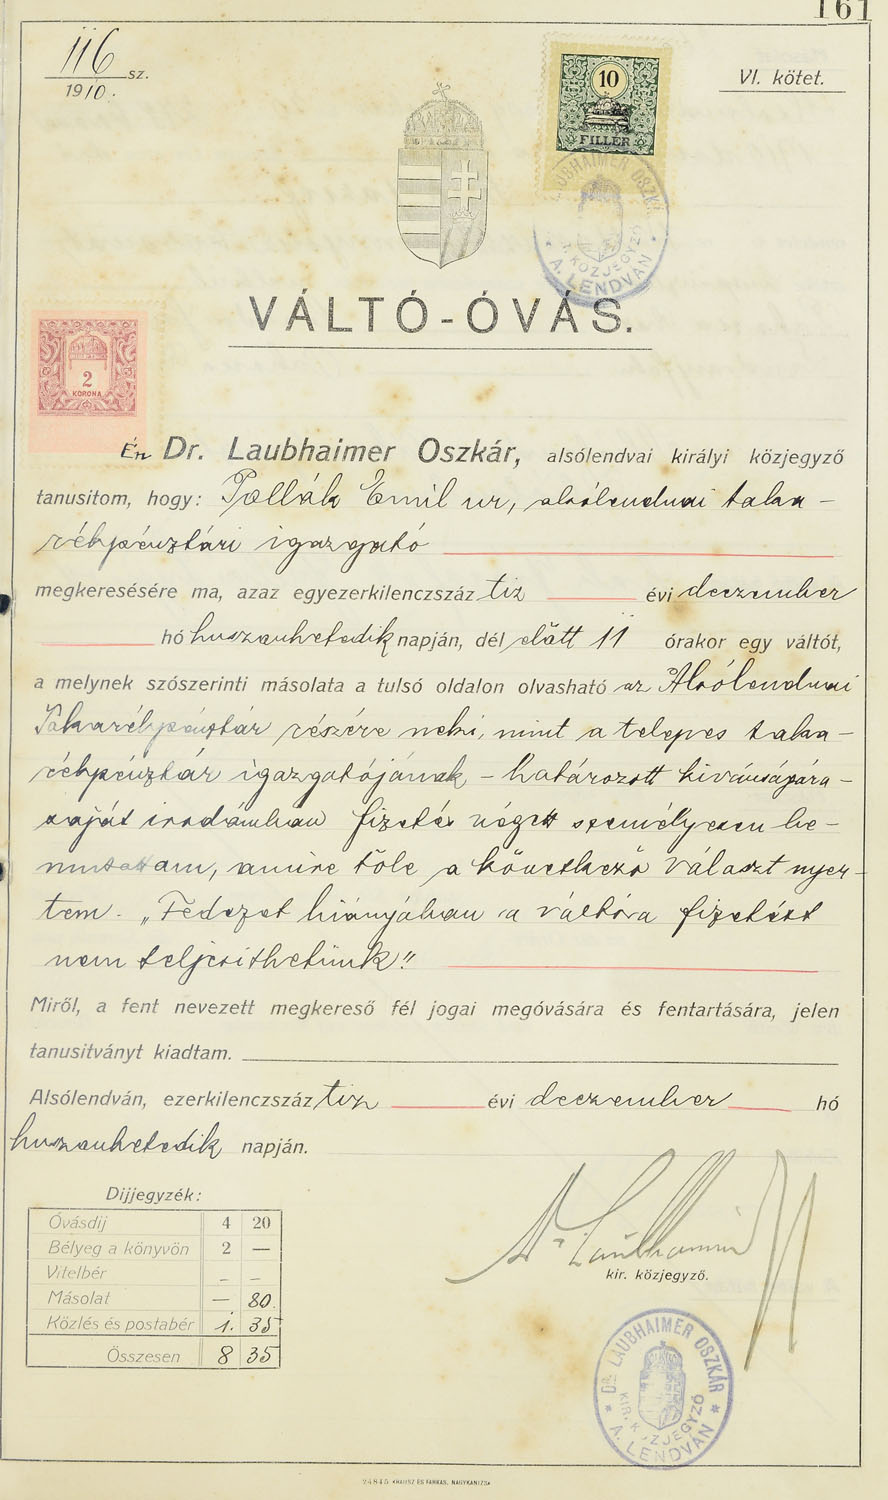 161
116 sz.
1910.
VI. kötet.
10
FILLÉR
LAUBHAIMER OSZKÁR
KIR. KÖZJEGYZŐ
* A. LENDVÁN *
VÁLTÓ-ÓVÁS.
2
KORONA
Én Dr. Laubhaimer Oszkár, alsólendvai királyi közjegyző
tanusitom, hogy: Pollák Emil ur, alsólendvai taka-
rékpénztári igazgató
megkeresésére ma, azaz egyezerkilenczszáz tiz évi deczember
hó huszanhetedik napján, dél előtt 11 órakor egy váltót,
a melynek szószerinti másolata a tulsó oldalon olvasható az Alsólendvai
Takarékpénztár részére neki, mint a telepes taka-
rékpénztár igazgatójának - határozott kivánságára -
saját irodámban fizetés végett személyesen be-
mutattam, amire tőle a következő választ nyer-
tem. „Fedezet hiányában a váltóra fizetést
nem teljesithetünk"
Miről, a fent nevezett megkereső fél jogai megóvására és fentartására, jelen
tanusitványt kiadtam.
Alsólendván, ezerkilenczszáz tiz évi deczember hó
huszanhetedik napján.
Dijjegyzék:
Óvásdij 4 20
Bélyeg a könyvön 2 —
Vitelbér – –
Másolat — 80
Közlés és postabér 1. 35
Összesen 8 35
Dr. Laubhaimer
kir. közjegyző.
DR. LAUBHAIMER OSZKÁR
KIR. KÖZJEGYZŐ
* A. LENDVÁN *
24845 KRAUSZ ÉS FARKAS, NAGYKANIZSA